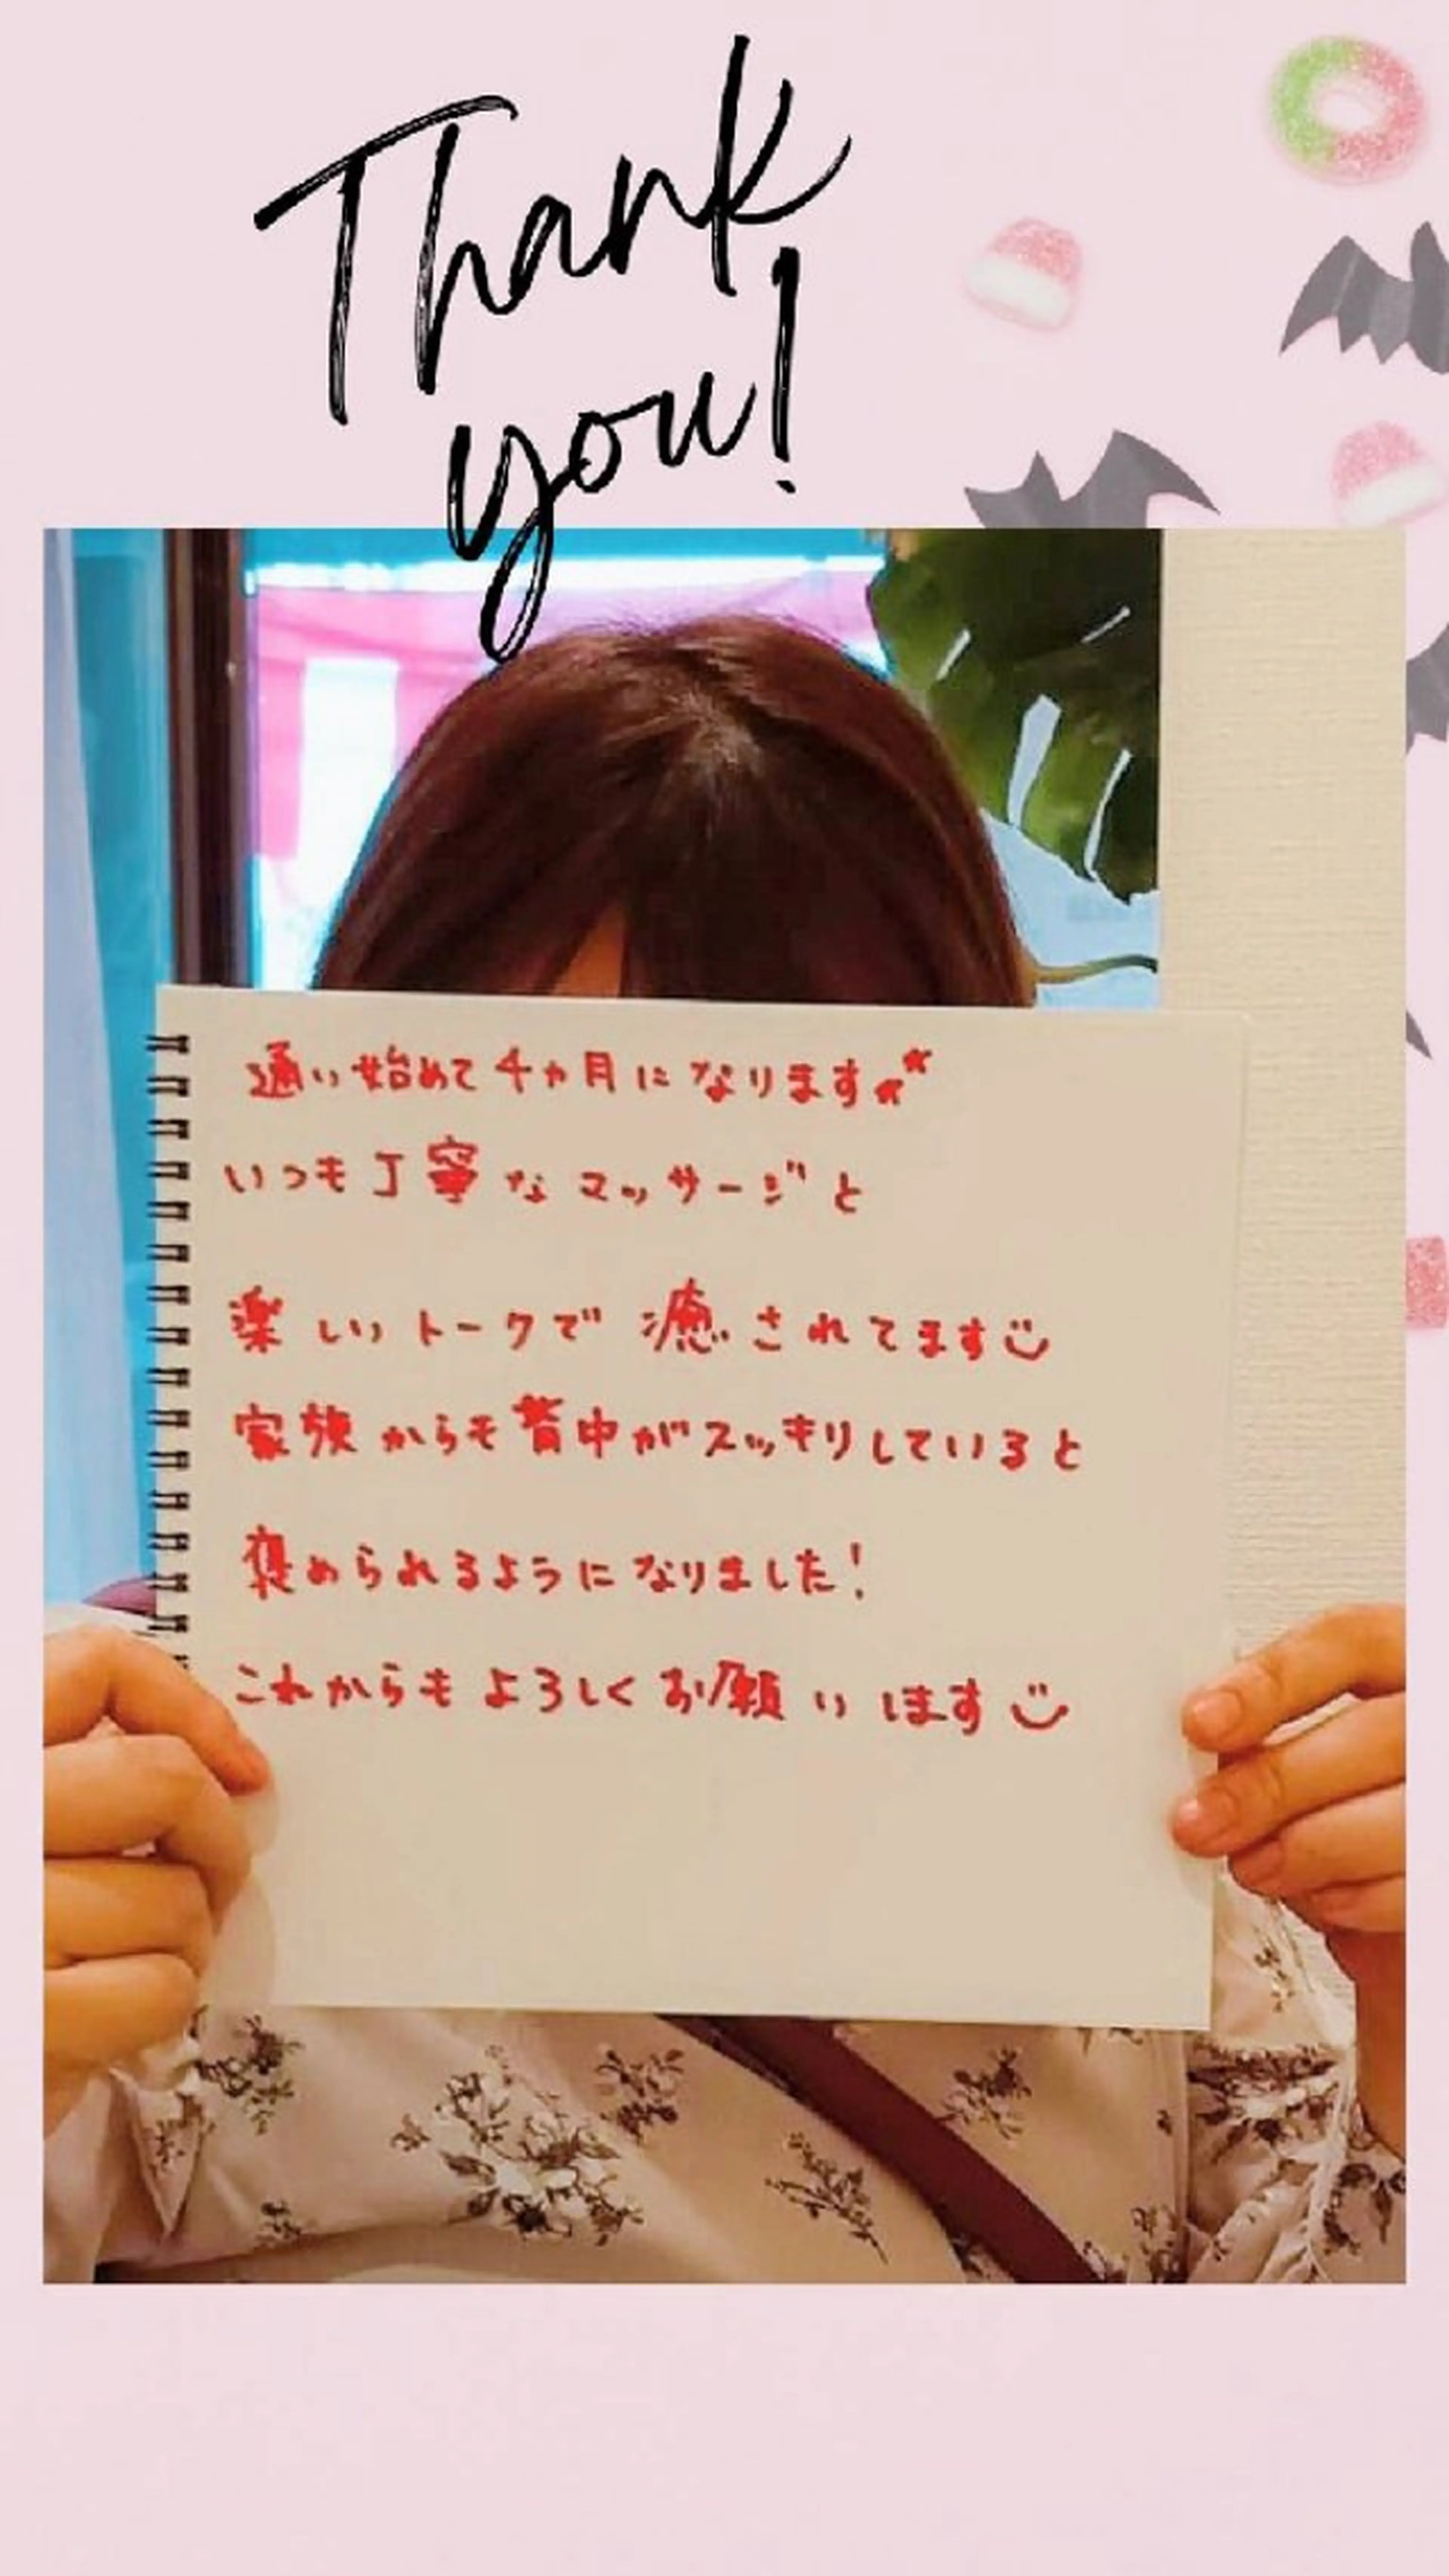 Thank
you!
通い始めて4ヵ月になります
いつも丁寧なマッサージと
楽しいトークで癒されてます
家族からも背中がスッキリしていると
褒められるようになりました!
これからもよろしくお願いします